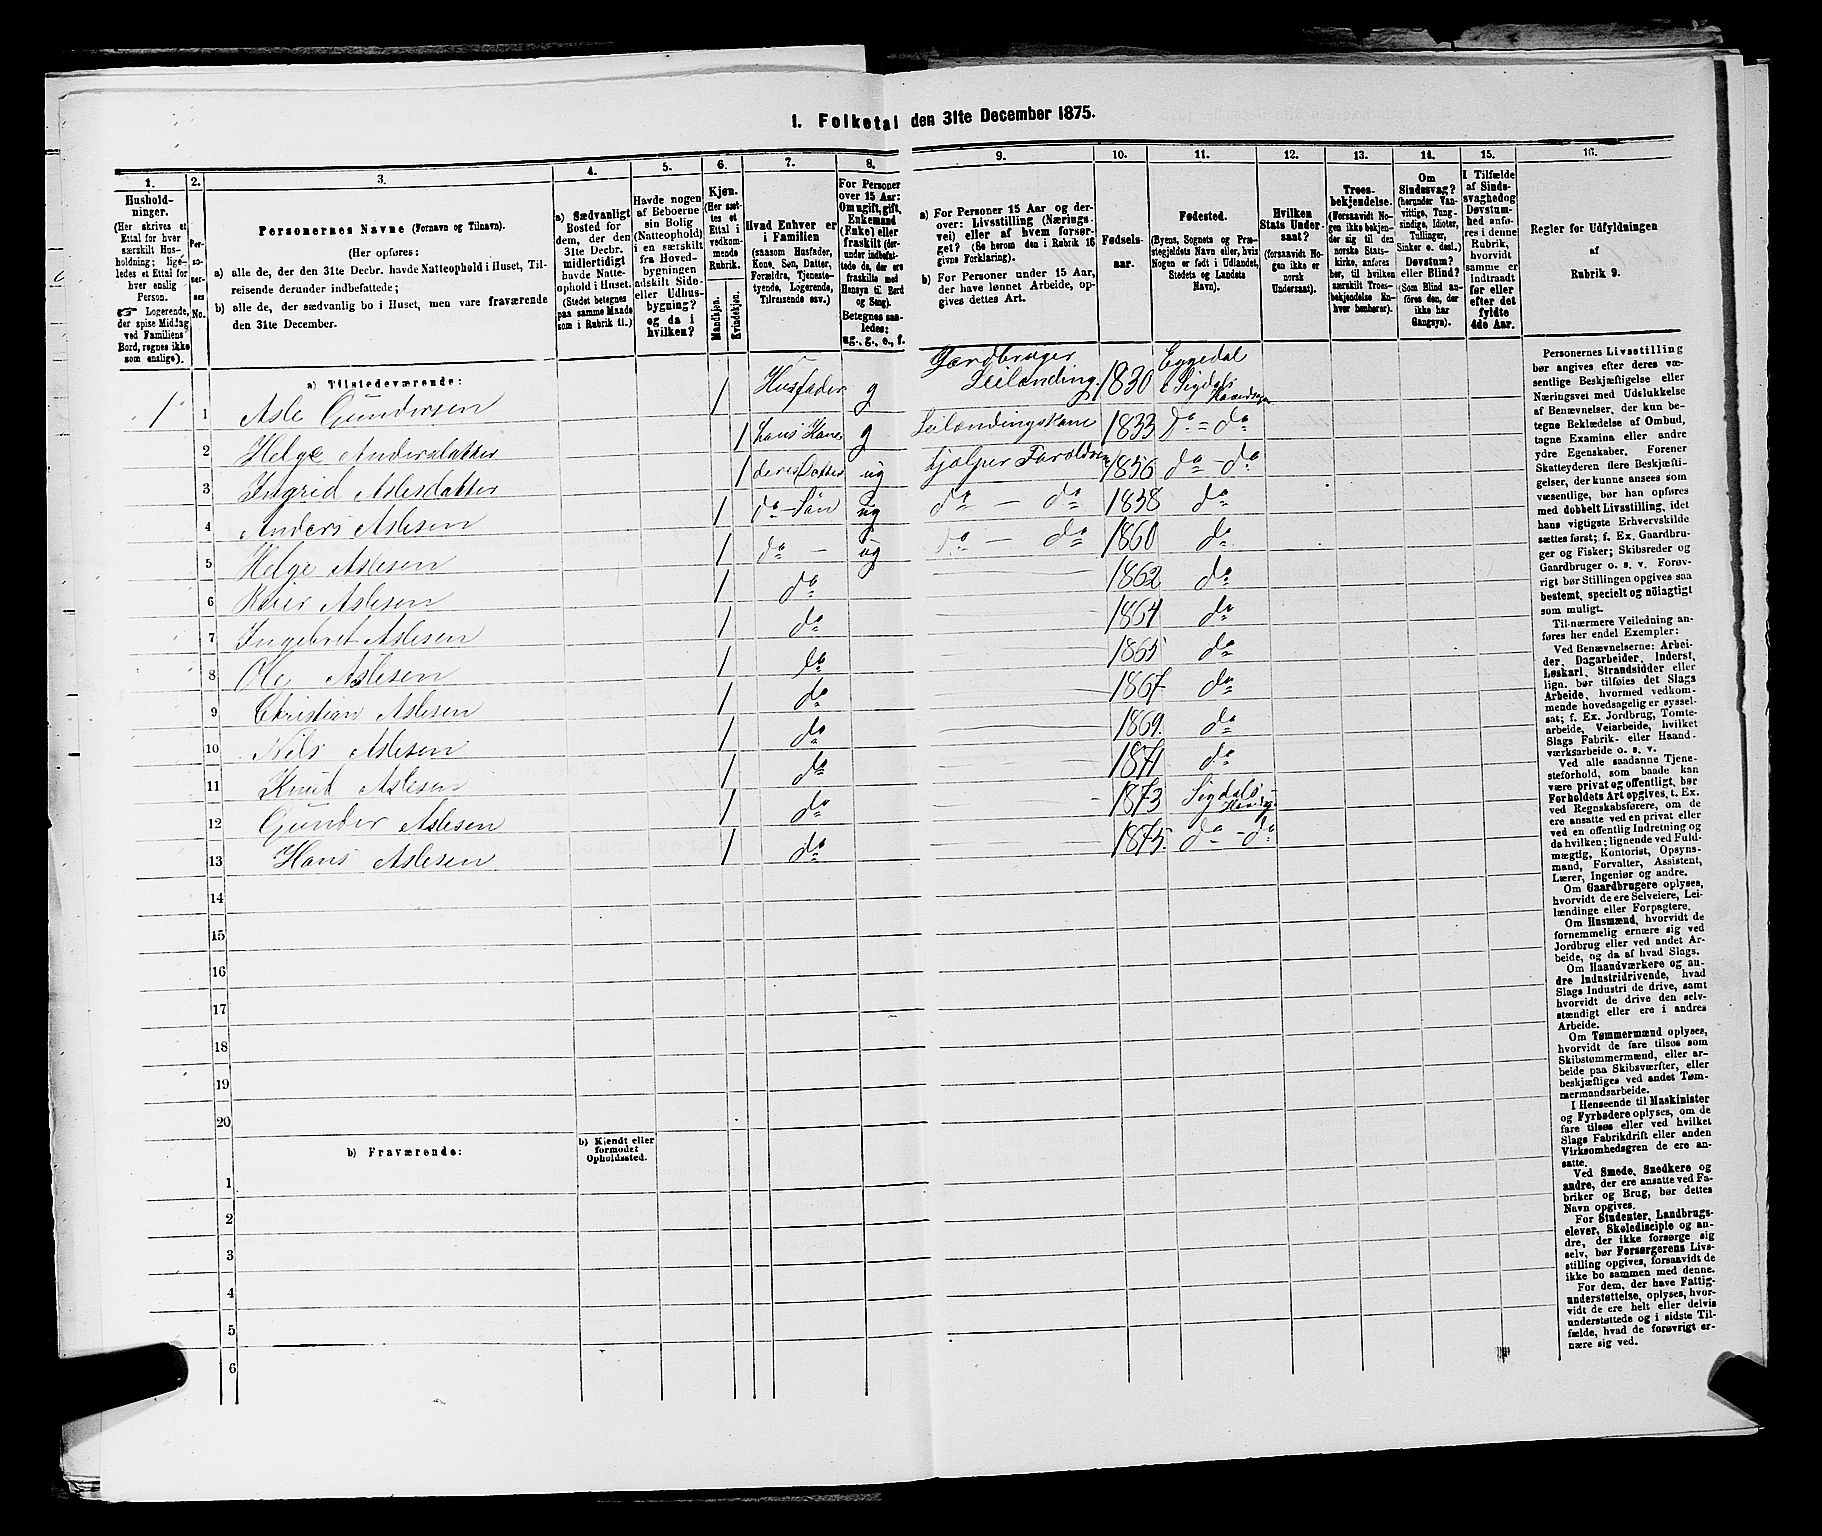 1. Folketal den 31te December 1875.
1. 2. 3. 4. 5. 6. 7. 8. 9. 10. 11. 12. 13. 14. 15. 16.
Hushold-
ninger.
(Her skrives et
Ettal for hver
særskilt Hus-
holdning; lige-
ledes et Ettal for
hver enslig
Person.
☞ Logerende,
der spise Middag
ved Familiens
Bord, regnes ikke
som enslige).
Per-
so-
ner-
nes
No.
Personernes Navne (Fornavn og Tilnavn).
(Her opføres:
a) alle de, der den 31te Decbr. havde Natteophold i Huset, Til-
reisende derunder indbefattede;
b) alle de, der sædvanlig bo i Huset, men vare fraværende
den 31te December.
a) Sædvanligt
Bosted for
dem, der den
31te Decbr.
midlertidigt
havde Natte-
ophold i Huset.
(Stedet betegnes
paa samme Maade
som i Rubrik 11.)
Havde nogen
af Beboerne
sin Bolig
(Natteophold)
i en særskilt
fra Hoved-
bygningen
adskilt Side-
eller Udhus-
bygning?
og da i
hvilken?
Kjøn.
(Her sæt-
tes et
Ettal i
vedkom-
mende
Rubrik.
Mandkjøn.
Kvindekjøn.
Hvad Enhver er
i Familien
(saasom Husfader,
Kone, Søn, Datter,
Forældre, Tjeneste-
tyende, Logerende,
Tilreisende osv.)
For Personer
over 15 Aar:
Om ugift, gift,
Enkemand
(Enke) eller
fraskilt (der-
under indbefat-
tede de, der ere
fraskilte med
Hensyn til Bord
og Seng).
Betegnes saa-
ledes:
ug., g., e., f.
a) For Personer 15 Aar og der-
over: Livsstilling (Nærings-
vei) eller af hvem forsør-
get? (Se herom den i Rubrik 16
givne Forklaring).
b) For Personer under 15 Aar,
der have lønnet Arbeide, op-
gives dettes Art.
Fødsels-
aar.
Fødested.
(Byens, Sognets og Præ-
stegjeldets Navn eller, hvis
Nogen er født i Udlandet,
Stedets og Landets
Navn).
Hvilken
Stats Under-
saat?
(forsaavidt No-
gen ikke er
norsk
Undersaat).
Troes-
bekjendelse.
(Forsaavidt No-
gen ikke bekjen-
der sig til den
norske Stats-
kirke, anføres
her, til hvilken
særskilt Troes-
bekjendelse En-
hver henhører).
Om
Sindssvag?
(herunder Van-
vittige, Tung-
sindige, Idioter,
Tullinger,
Sinker o. desl.)
Døvstum?
eller Blind?
(Som Blind an-
føres den, der
ikke har
Gangsyn).
I Tilfælde
af Sinds-
svaghed og
Døvstum-
hed anfø-
res i denne
Rubrik,
hvorvidt
samme er
indtraadt
før eller
efter det
fyldte
4de Aar.
Regler for Udfyldningen
af
Rubrik 9.
a) Tilstedeværende:
1 1 Asle Gundersen 1 Husfader g Gardbruger Leilending. 1830 Eggedal i Sigdals
2 Helge Andersdatter 1 hans Kone g Leilendingskone 1833 do = do
3 Ingrid Aslesdatter 1 deres Datter ug hjelper Foreldrene 1856 do - do
4 Anders Aslesen 1 do - Søn ug do - do 1858 do
5 Helge Aslesen 1 do - ug do - do 1860 do
6 Aslesen 1 do 1862 do
7 Ingebret Aslesen 1 do 1864 do
8 Ole Aslesen 1 do 1865 do
9 Christian Aslesen 1 do 1867 do
10 Nils Aslesen 1 do 1869 do
11 Knud Aslesen 1 do 1871 do
12 Gunder Aslesen 1 do 1873 Sigdals
13 Hans Aslesen 1 do 1875 do - do
14
15
16
17
18
19
20
b) Fraværende:
b) Kjendt eller
formodet
Opholdssted.
1
2
3
4
5
6
Personernes Livsstilling
bør angives efter deres væ-
sentlige Beskjæftigelse eller
Næringsvei med Udelukkelse
af Benævnelser, der kun be-
tegne Beklædelse af Ombud,
tagne Examina eller andre
ydre Egenskaber. Forener
Skatteyderen flere Beskjæfti-
gelser, der kunne ansees som
væsentlige, bør han opføres
med dobbelt Livsstilling, idet
hans vigtigste Erhvervskilde
sættes først; f. Ex. Gaardbru-
ger og Fisker; Skibsreder og
Gaardbruger o. s. v. Forøv-
rigt bør Stillingen opgives saa
bestemt, specielt og nöiagtigt
som muligt.
Til nærmere Veiledning an-
føres her endel Exempler:
Ved Benævnelserne: Arbei-
der, Dagarbeider, Inderst,
Løskarl, Strandsidder eller
lign. bør tilføies det Slags
Arbeide, hvormed vedkom-
mende hovedsagelig er syssel-
sat; f. Ex. Jordbrug, Tomte-
arbeide, Veiarbeide, hvilket
Slags Fabrik- eller Haand-
værksarbeide o. s. v.
Ved alle saadanne Tjene-
steforhold, som baade kan
være privat og offentligt, bør
Forholdets Art opgives, t. Ex.
ved Regnskabsførere, om de
ere ansatte ved en privat eller
ved en offentlig Indretning og
da hvilken; lignende ved Fuld-
mægtig, Kontorist, Opsyns-
mand, Forvalter, Assistent,
Lærer, Ingeniør og andre.
Om Gaardbrugere oplyses,
hvorvidt de ere Selveiere, Lei-
lændinge eller Forpagtere.
Om Husmænd, hvorvidt de
fornemmelig ernære sig ved
Jordbrug eller ved andet Ar-
beide, og da af hvad Slags.
Om Haandværkere og an-
dre Industridrivende, hvad
Slags Industri de drive, samt
hvorvidt de drive den selv-
stændigt eller ere i andres
Arbeide.
Om Tømmermænd oplyses,
hvorvidt de fare tilsøs som
Skibstømmermænd, eller ar-
beide paa Skibsværfter, eller
beskjæftiges ved andet Tøm-
mermandsarbeide.
I Henseende til Maskinister
og Fyrbødere oplyses, om de
fare tilsøs eller ved hvilket
Slags Fabrikdrift eller anden
Virksomhedsgren de ere an-
satte.
Ved Smede, Snedkere og
andre, der ere ansatte ved Fa-
briker og Brug, bør dettes
Navn opgives.
For Studenter, Landbrugs-
elever, Skoledisciple og an-
dre, der ikke forsørge sig
selv, bør Forsørgerens Livs-
stilling opgives, forsaavidt de
ikke bo sammen med denne.
For dem, der have Fattig-
understøttelse, oplyses, hvor-
vidt de ere helt eller delvis
understøttede og i sidste Til-
fælde, hvad de forøvrigt er-
nære sig ved.